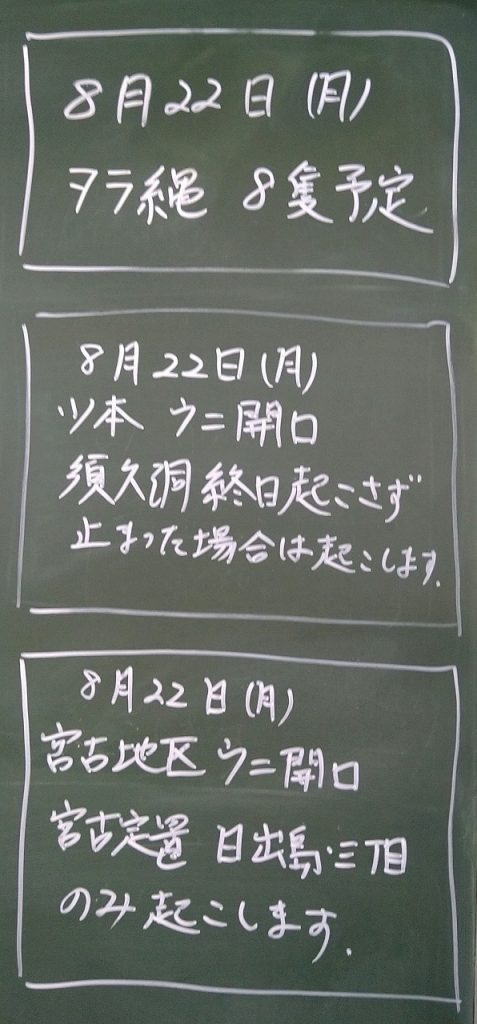 8月22日(月)
タラ縄 8隻予定
8月22日(月)
ツ本 ウニ開口
須久洞終日起こさず
止まった場合は起こします.
8月22日(月)
宮古地区 ウニ開口
宮古定置 日出島・三丁目
のみ起こします.